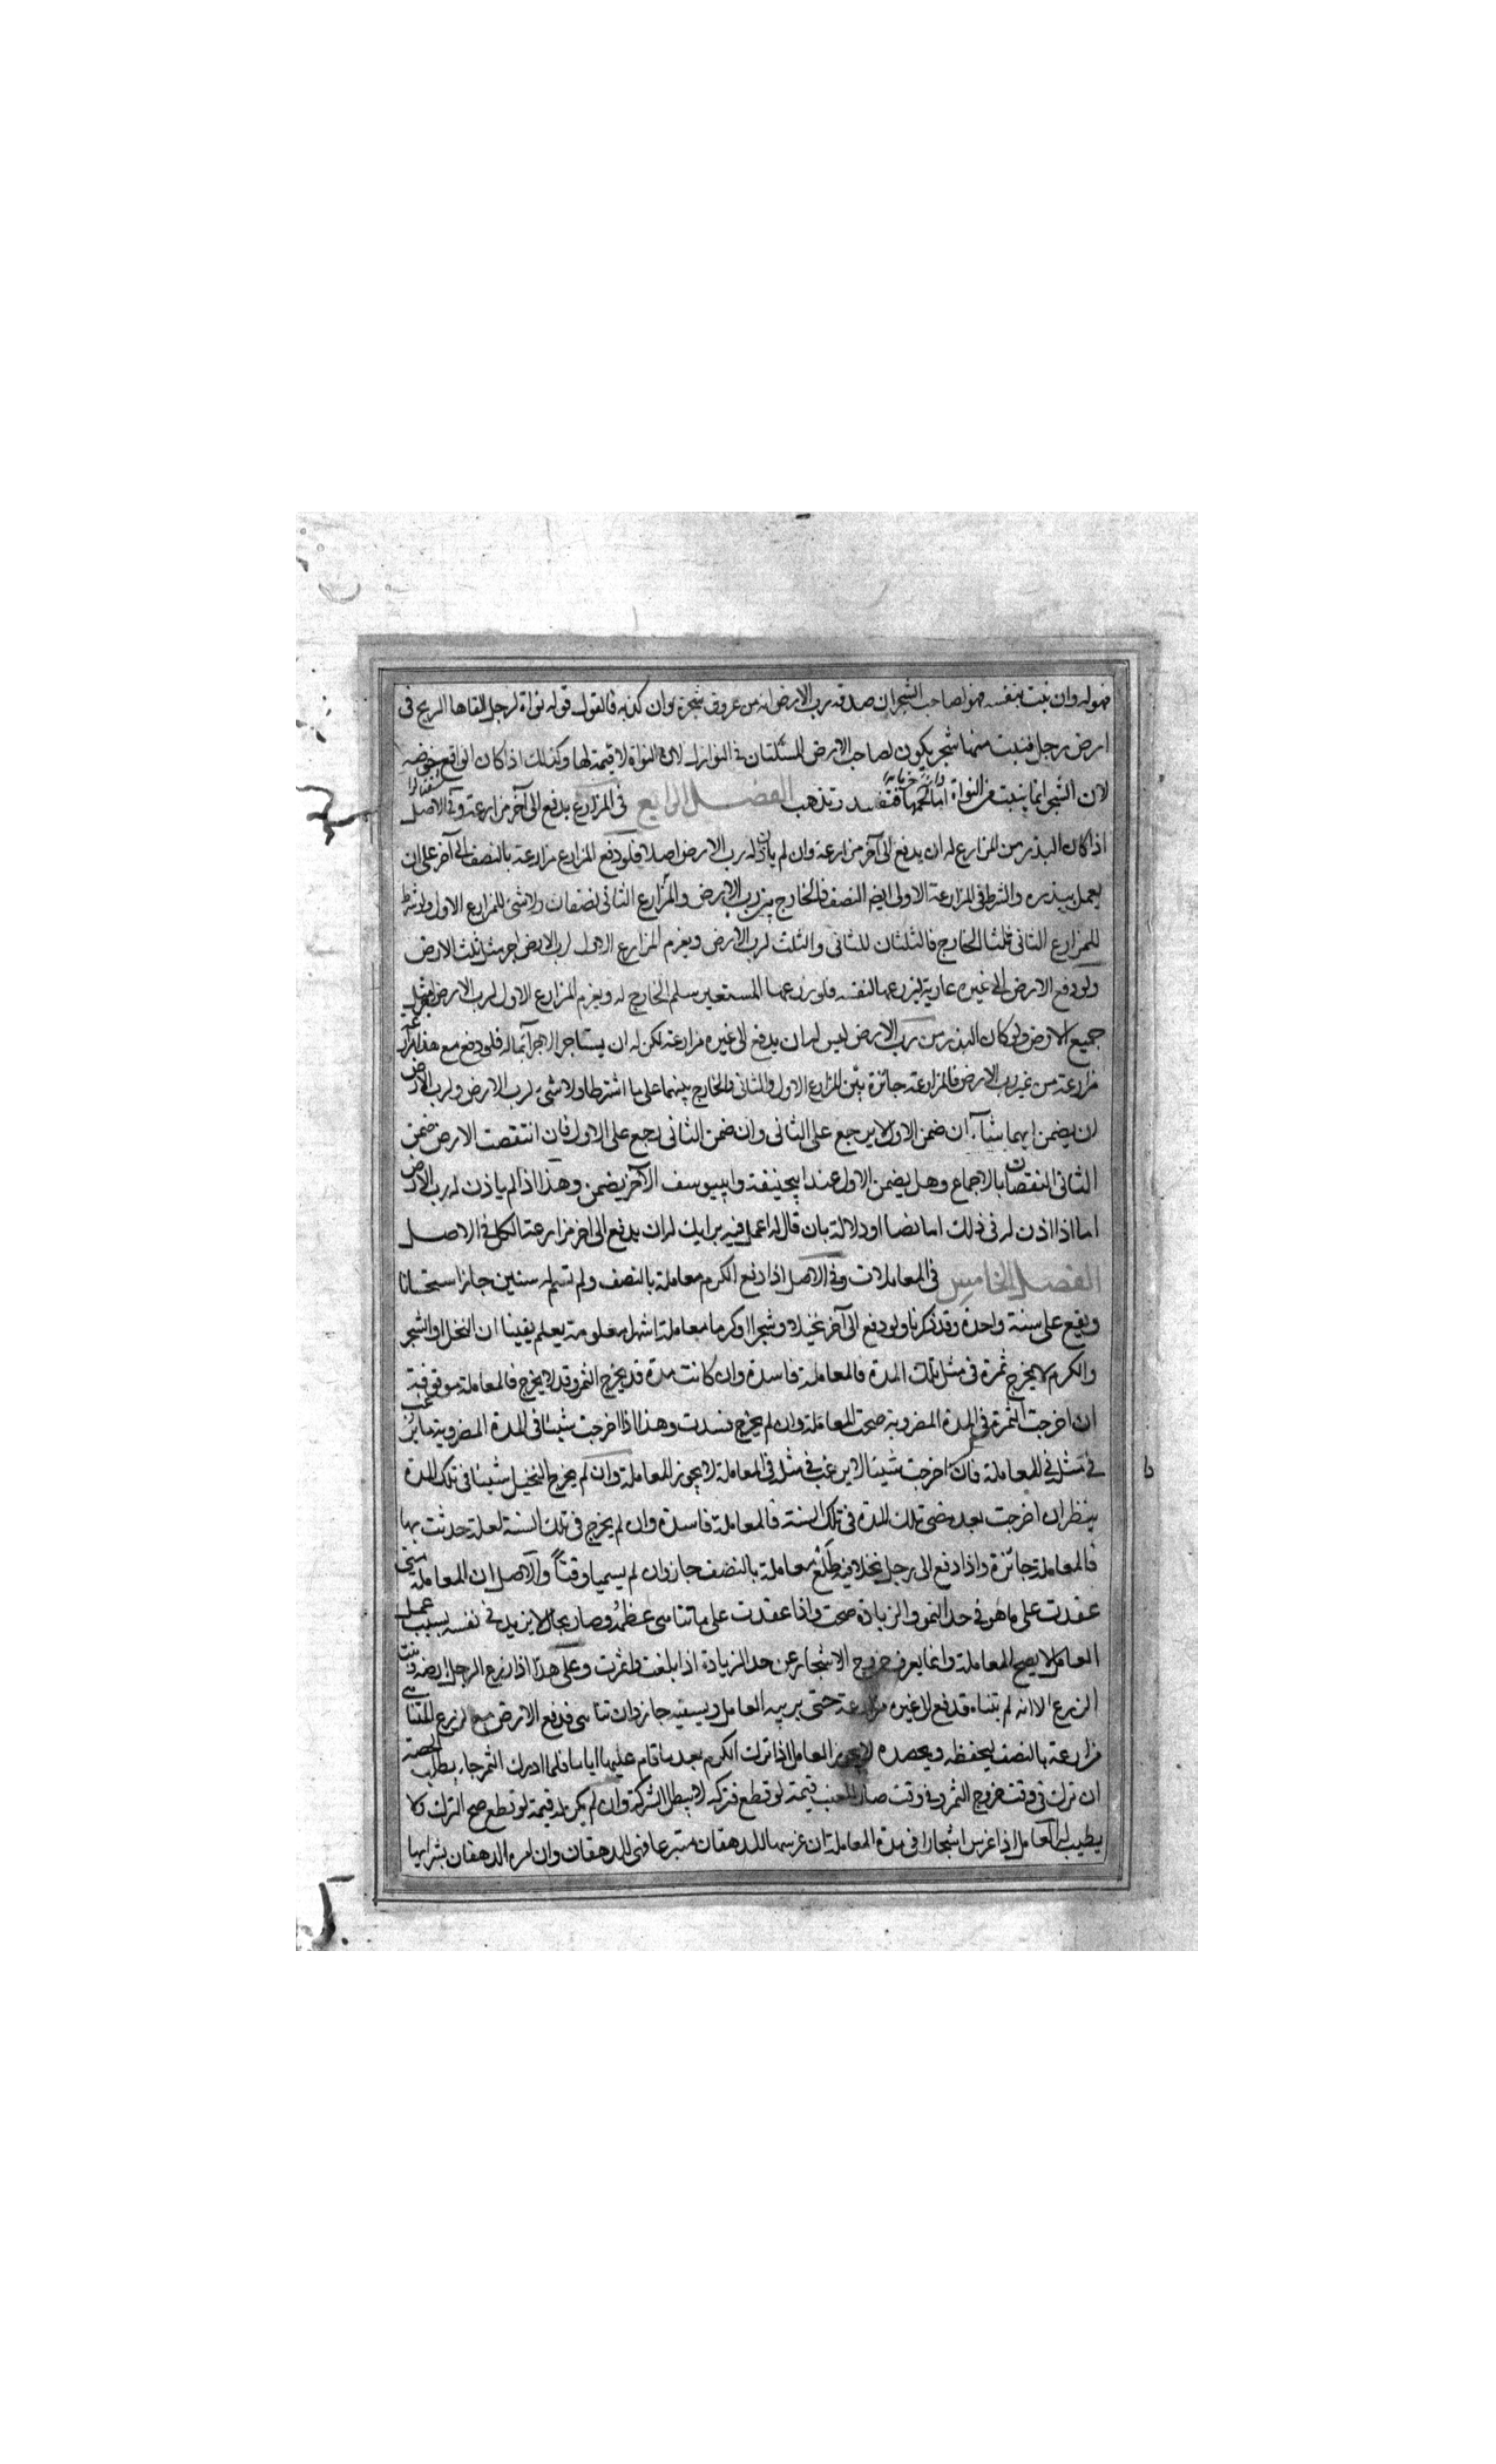 فهو له وان نبت بنفسه فهو لصاحب الشجر ان صدقه رب الارض انه من عروق شجرة وان كذبه فالقول قوله نواة لرجل القاها الريح فى
ارض رجل فنبت منها شجر يكون لصاحب الارض المسئلتان فى النوازل لان النواة لا قيمة لها وكذلك اذا كان الواقع خوخه
لان الشجر انما ينبت من النواة اما لحمها فتفسد وتذهب الفصل الرابع فى المزارع يدفع الى آخر مزارعة وفى الاصل
اذا كان البذر من المزارع له ان يدفع الى آخر مزارعة وان لم ياذن له رب الارض اصلا فلو دفع المزارع مزارعة بالنصف الى آخر على ان
يعمل ببذره والشرط فى المزارعة الاولى ايضا النصف فالخارج بين رب الارض والمزارع الثانى نصفان ولا شئ للمزارع الاول ولو شرط
للمزارع الثانى ثلثا الخارج فالثلثان للثانى والثلث لرب الارض ويغرم المزارع الاول لرب الارض اجر مثل ثلث الارض
ولو دفع الارض الى غيره عارية ليزرعها لنفسه فلو زرعها المستعير سلم الخارج له ويغرم المزارع الاول لرب الارض اجر مثل
جميع الارض ولو كان البذر من رب الارض ليس له ان يدفع الى غيره مزارعة لكن له ان يستاجر الاجراء بماله فلو دفع مع هذا
مزارعة من غير رب الارض فالمزارعة جائزة بين المزارع الاول والثانى والخارج بينهما على ما اشترطا ولا شئ لرب الارض ولرب الارض
ان يضمن ايهما شاء ان ضمن الاول لا يرجع على الثانى وان ضمن الثانى رجع على الاول فان انتقصت الارض ضمن
الثانى النقصان بالاجماع وهل يضمن الاول عند ابيحنيفة وابييوسف الآخر يضمن وهذا اذا لم ياذن له رب الارض
اما اذا اذن له فى ذلك اما نصا او دلالة بان قال له اعمل فيه برايك له ان يدفع الى اخر مزارعة الكل فى الاصل
الفصل الخامس فى المعاملات وفى الاصل اذا دفع الكرم معاملة بالنصف ولم تسم له سنين جاز استحسانا
ويقع على سنة واحدة وقد ذكرنا ولو دفع الى آخر نخيلا او شجرا او كرما معاملة اشهرا معلومة يعلم يقينا ان النخل والشجر
والكرم لا يخرج ثمرة فى مثل تلك المدة فالمعاملة فاسدة وان كانت مدة قد يخرج الثمر وقد لا يخرج فالمعاملة موقوفة
ان اخرجت الثمرة فى المدة المضروبة صحت المعاملة وان لم يخرج فسدت وهذا اذا اخرجت شيئا فى المدة المضروبة ما يرغب
فى مثله فى المعاملة فان اخرجت شيئا لا يرغب فى مثله فى المعاملة لا يجوز المعاملة وان لم يخرج النخيل شيئا فى تلك المدة
ينظر ان اخرجت بعد مضى تلك المدة فى تلك السنة فالمعاملة فاسدة وان لم يخرج فى تلك السنة لعلة حدثت بها
فالمعاملة جائزة واذا دفع الى رجل نخلا فيه طلع معاملة بالنصف جاز وان لم يسميا وقتاً والاصل ان المعاملة متى
عقدت على ما هو فى حد النمو والزيادة صحت واذا عقدت على ما تناهى عظمه وصار بحال لا يزيد فى نفسه بسبب عمل
العامل لا يصح المعاملة وانما يعرف خروج الاشجار عن حد الزيادة اذا بلغت واثمرت وعلى هذا اذا زرع الرجل ارضه ونبت
الزرع الا انه لم يتناه فدفع الى غيره مزارعة حتى يربيه العامل ويسقيه جاز وان تناهى فدفع الارض مع الزرع المتناهى
مزارعة بالنصف ليحفظه ويحصده لا يجوز العامل اذا ترك الكرم بعد ما قام عليها اياما فلما ادرك الثمر جاء يطلب الحصة
ان ترك فى وقت خروج الثمر وفى وقت صار للعنب قيمة لو قطع فتركه لا يبطل الشركة وان لم يكن له قيمة لو قطع صح الترك ولا
يطيب له العامل اذا غرس اشجارا فى مدة المعاملة ان غرسها للدهقان متبرعا فهى للدهقان وان امره الدهقان بشرايها